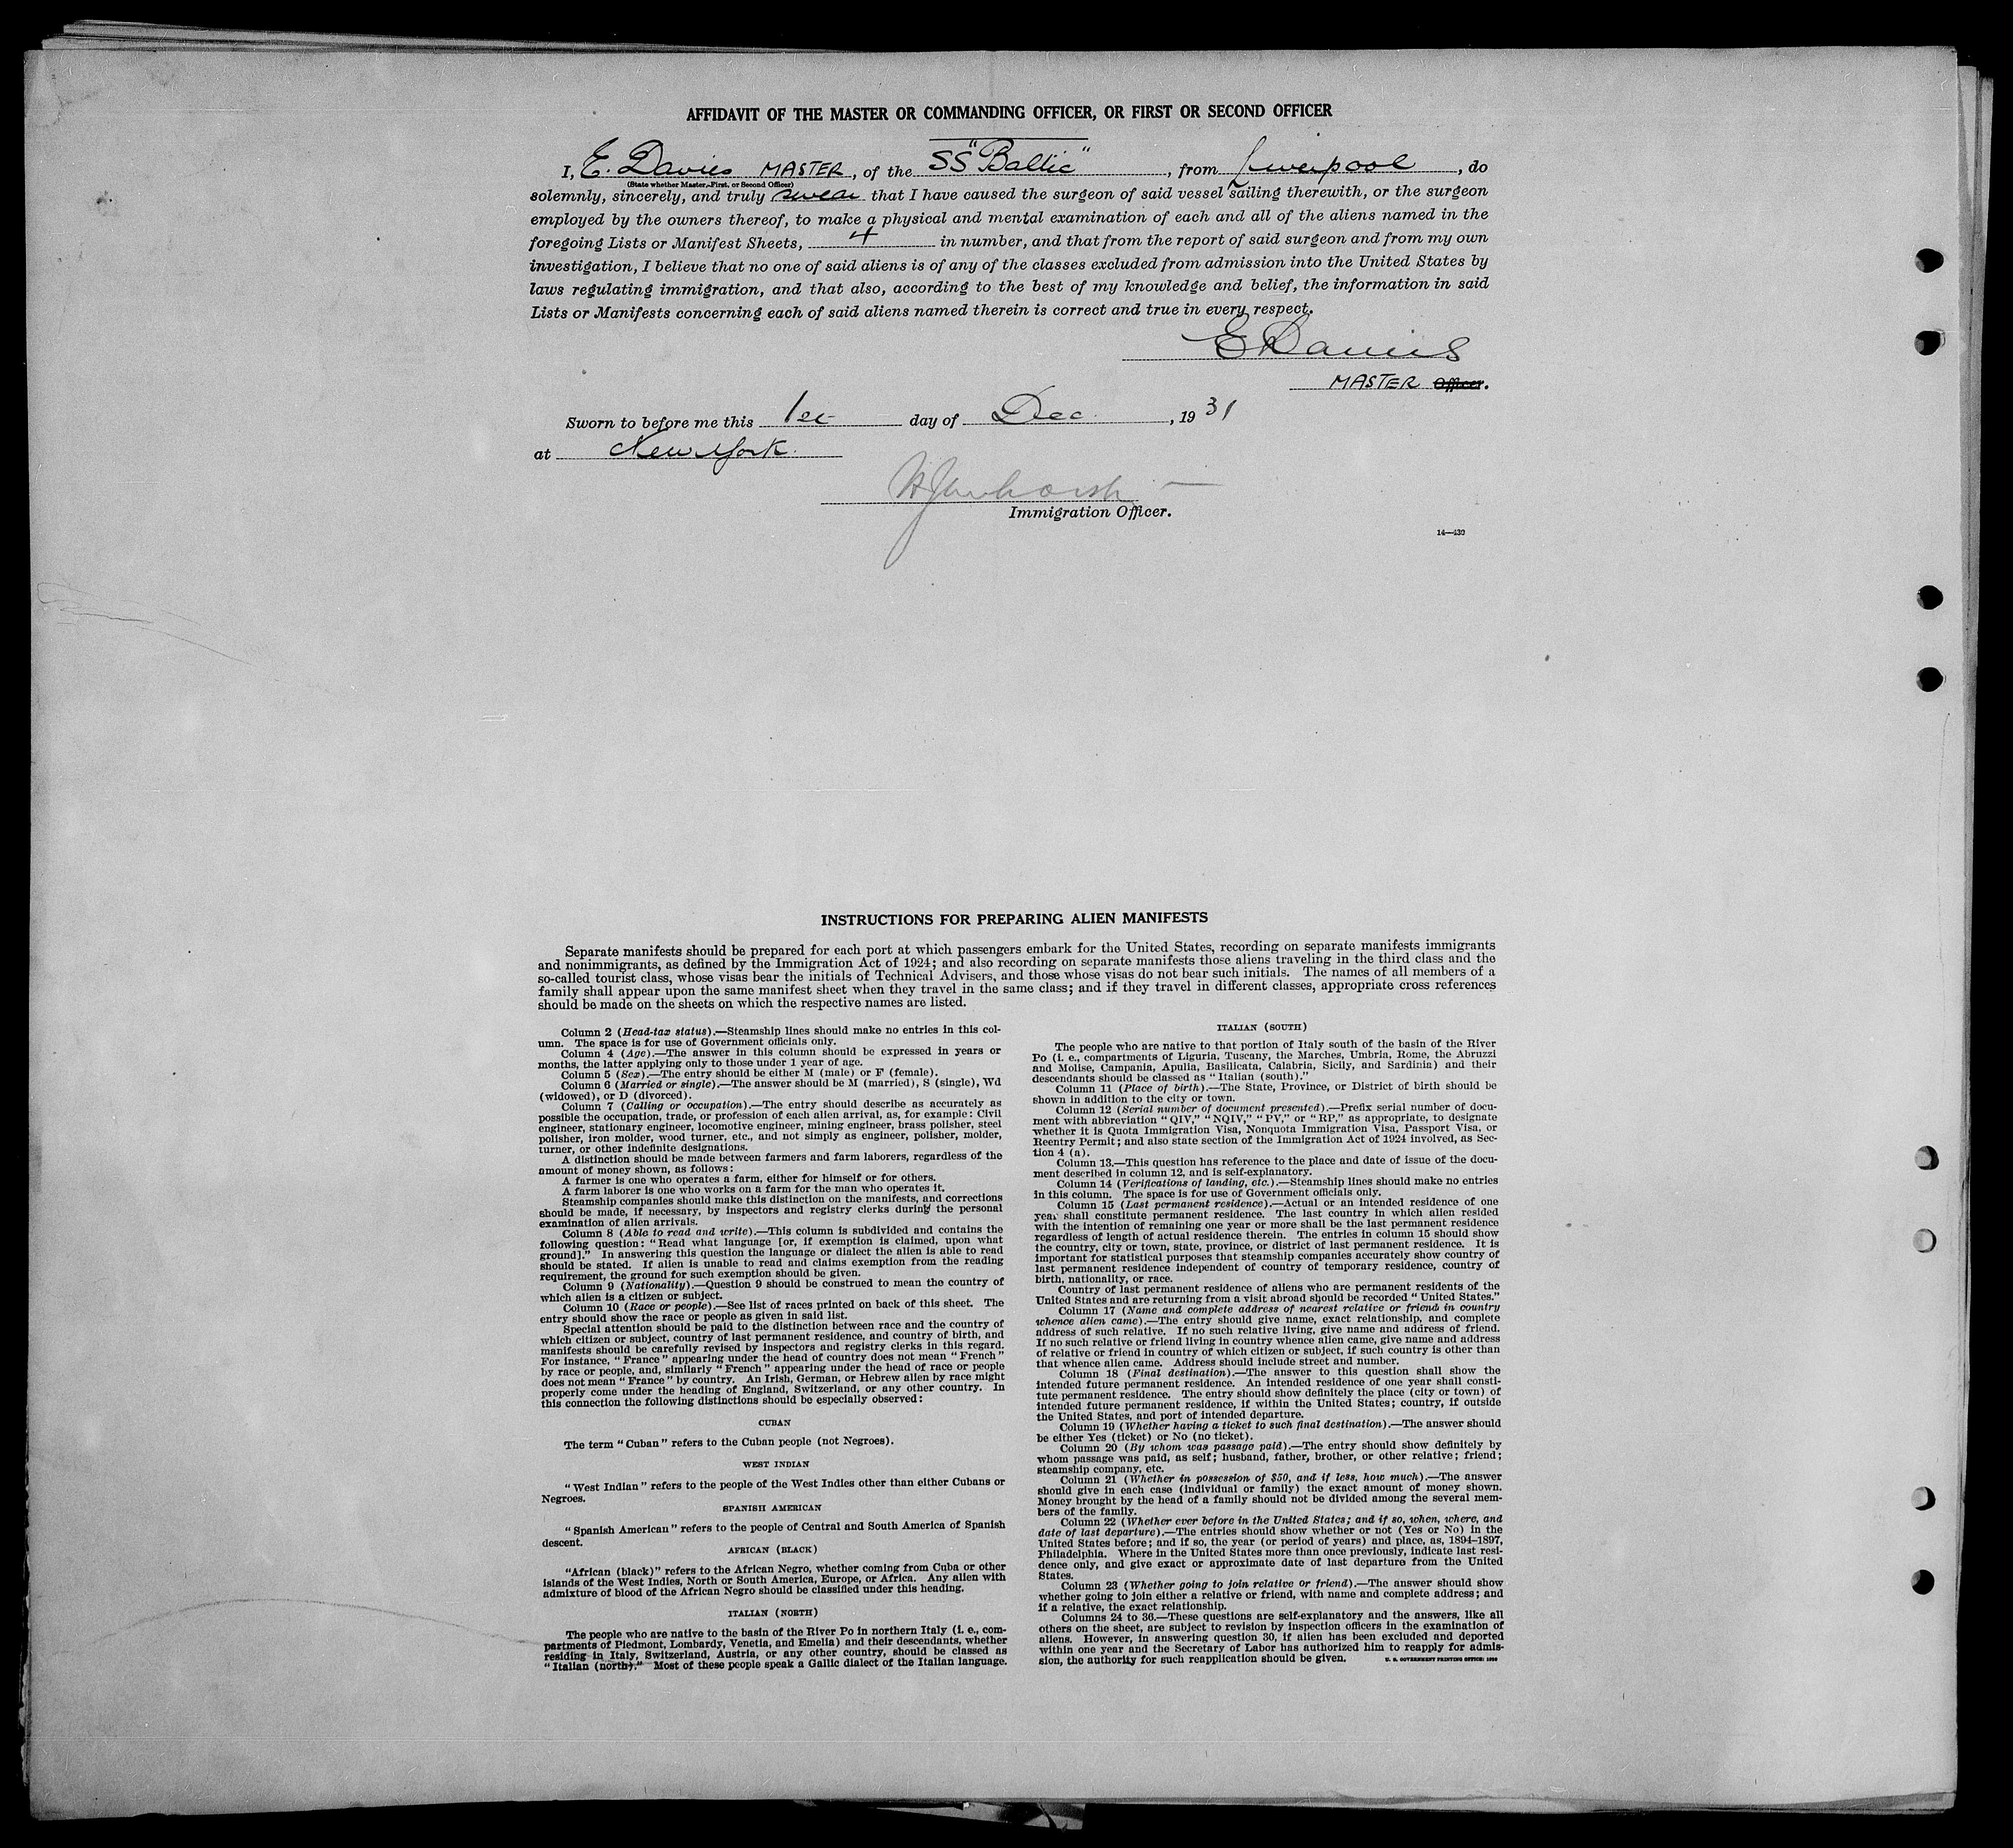 AFFIDAVIT OF THE MASTER OR COMMANDING OFFICER, OR FIRST OR SECOND OFFICER
I, E. Davies MASTER, of the SS "Baltic", from Liverpool, do
(State whether Master, First, or Second Officer)
solemnly, sincerely, and truly swear that I have caused the surgeon of said vessel sailing therewith, or the surgeon
employed by the owners thereof, to make a physical and mental examination of each and all of the aliens named in the
foregoing Lists or Manifest Sheets, 4 in number, and that from the report of said surgeon and from my own
investigation, I believe that no one of said aliens is of any of the classes excluded from admission into the United States by
laws regulating immigration, and that also, according to the best of my knowledge and belief, the information in said
Lists or Manifests concerning each of said aliens named therein is correct and true in every respect.
E Davies
MASTER Officer.
Sworn to before me this 1st day of Dec., 1931
at New York.
Immigration Officer.
14—430
INSTRUCTIONS FOR PREPARING ALIEN MANIFESTS
Separate manifests should be prepared for each port at which passengers embark for the United States, recording on separate manifests immigrants
and nonimmigrants, as defined by the Immigration Act of 1924; and also recording on separate manifests those aliens traveling in the third class and the
so-called tourist class, whose visas bear the initials of Technical Advisers, and those whose visas do not bear such initials. The names of all members of a
family shall appear upon the same manifest sheet when they travel in the same class; and if they travel in different classes, appropriate cross references
should be made on the sheets on which the respective names are listed.
Column 2 (Head-tax status).—Steamship lines should make no entries in this col-
umn. The space is for use of Government officials only.
Column 4 (Age).—The answer in this column should be expressed in years or
months, the latter applying only to those under 1 year of age.
Column 5 (Sex).—The entry should be either M (male) or F (female).
Column 6 (Married or single).—The answer should be M (married), S (single), Wd
(widowed), or D (divorced).
Column 7 (Calling or occupation).—The entry should describe as accurately as
possible the occupation, trade, or profession of each alien arrival, as, for example: Civil
engineer, stationary engineer, locomotive engineer, mining engineer, brass polisher, steel
polisher, iron molder, wood turner, etc., and not simply as engineer, polisher, molder,
turner, or other indefinite designations.
A distinction should be made between farmers and farm laborers, regardless of the
amount of money shown, as follows:
A farmer is one who operates a farm, either for himself or for others.
A farm laborer is one who works on a farm for the man who operates it.
Steamship companies should make this distinction on the manifests, and corrections
should be made, if necessary, by inspectors and registry clerks during the personal
examination of alien arrivals.
Column 8 (Able to read and write).—This column is subdivided and contains the
following question: "Read what language [or, if exemption is claimed, upon what
ground]." In answering this question the language or dialect the alien is able to read
should be stated. If alien is unable to read and claims exemption from the reading
requirement, the ground for such exemption should be given.
Column 9 (Nationality).—Question 9 should be construed to mean the country of
which alien is a citizen or subject.
Column 10 (Race or people).—See list of races printed on back of this sheet. The
entry should show the race or people as given in said list.
Special attention should be paid to the distinction between race and the country of
which citizen or subject, country of last permanent residence, and country of birth, and
manifests should be carefully revised by inspectors and registry clerks in this regard.
For instance, "France" appearing under the head of country does not mean "French"
by race or people, and, similarly "French" appearing under the head of race or people
does not mean "France" by country. An Irish, German, or Hebrew alien by race might
properly come under the heading of England, Switzerland, or any other country. In
this connection the following distinctions should be especially observed:
CUBAN
The term "Cuban" refers to the Cuban people (not Negroes).
WEST INDIAN
"West Indian" refers to the people of the West Indies other than either Cubans or
Negroes.
SPANISH AMERICAN
"Spanish American" refers to the people of Central and South America of Spanish
descent.
AFRICAN (BLACK)
"African (black)" refers to the African Negro, whether coming from Cuba or other
islands of the West Indies, North or South America, Europe, or Africa. Any alien with
admixture of blood of the African Negro should be classified under this heading.
ITALIAN (NORTH)
The people who are native to the basin of the River Po in northern Italy (i. e., com-
partments of Piedmont, Lombardy, Venetia, and Emelia) and their descendants, whether
residing in Italy, Switzerland, Austria, or any other country, should be classed as
"Italian (north)." Most of these people speak a Gallic dialect of the Italian language.
ITALIAN (SOUTH)
The people who are native to that portion of Italy south of the basin of the River
Po (i. e., compartments of Liguria, Tuscany, the Marches, Umbria, Rome, the Abruzzi
and Molise, Campania, Apulia, Basilicata, Calabria, Sicily, and Sardinia) and their
descendants should be classed as "Italian (south)."
Column 11 (Place of birth).—The State, Province, or District of birth should be
shown in addition to the city or town.
Column 12 (Serial number of document presented).—Prefix serial number of docu-
ment with abbreviation "QIV," "NQIV," "PV," or "RP," as appropriate, to designate
whether it is Quota Immigration Visa, Nonquota Immigration Visa, Passport Visa, or
Reentry Permit; and also state section of the Immigration Act of 1924 involved, as Sec-
tion 4 (a).
Column 13.—This question has reference to the place and date of issue of the docu-
ment described in column 12, and is self-explanatory.
Column 14 (Verifications of landing, etc.).—Steamship lines should make no entries
in this column. The space is for use of Government officials only.
Column 15 (Last permanent residence).—Actual or an intended residence of one
year shall constitute permanent residence. The last country in which alien resided
with the intention of remaining one year or more shall be the last permanent residence
regardless of length of actual residence therein. The entries in column 15 should show
the country, city or town, state, province, or district of last permanent residence. It is
important for statistical purposes that steamship companies accurately show country of
last permanent residence independent of country of temporary residence, country of
birth, nationality, or race.
Country of last permanent residence of aliens who are permanent residents of the
United States and are returning from a visit abroad should be recorded "United States."
Column 17 (Name and complete address of nearest relative or friend in country
whence alien came).—The entry should give name, exact relationship, and complete
address of such relative. If no such relative living, give name and address of friend.
If no such relative or friend living in country whence alien came, give name and address
of relative or friend in country of which citizen or subject, if such country is other than
that whence alien came. Address should include street and number.
Column 18 (Final destination).—The answer to this question shall show the
intended future permanent residence. An intended residence of one year shall consti-
tute permanent residence. The entry should show definitely the place (city or town) of
intended future permanent residence, if within the United States; country, if outside
the United States, and port of intended departure.
Column 19 (Whether having a ticket to such final destination).—The answer should
be either Yes (ticket) or No (no ticket).
Column 20 (By whom was passage paid).—The entry should show definitely by
whom passage was paid, as self; husband, father, brother, or other relative; friend;
steamship company, etc.
Column 21 (Whether in possession of $50, and if less, how much).—The answer
should give in each case (individual or family) the exact amount of money shown.
Money brought by the head of a family should not be divided among the several mem-
bers of the family.
Column 22 (Whether ever before in the United States; and if so, when, where, and
date of last departure).—The entries should show whether or not (Yes or No) in the
United States before; and if so, the year (or period of years) and place, as, 1894–1897,
Philadelphia. Where in the United States more than once previously, indicate last resi-
dence only, and give exact or approximate date of last departure from the United
States.
Column 23 (Whether going to join relative or friend).—The answer should show
whether going to join either a relative or friend, with name and complete address; and
if a relative, the exact relationship.
Columns 24 to 36.—These questions are self-explanatory and the answers, like all
others on the sheet, are subject to revision by inspection officers in the examination of
aliens. However, in answering question 30, if alien has been excluded and deported
within one year and the Secretary of Labor has authorized him to reapply for admis-
sion, the authority for such reapplication should be given. U. S. GOVERNMENT PRINTING OFFICE: